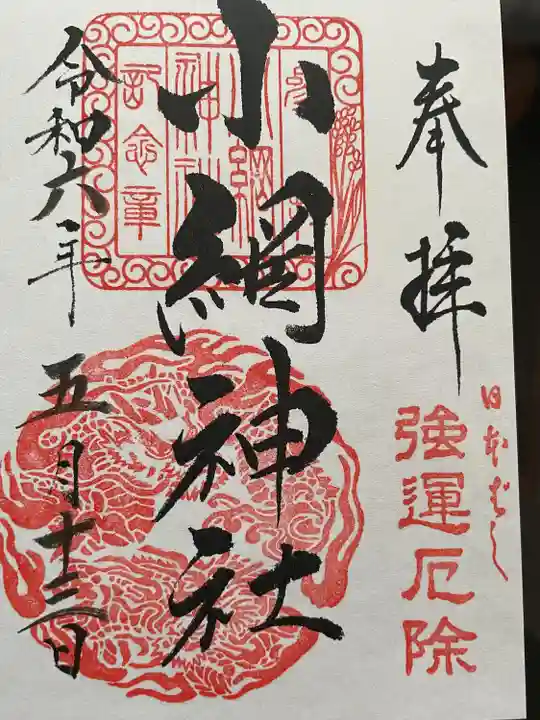 奉拝
日本ばし
強運厄除
小網神社
小網
神社
記念章
令和六年
五月十三日